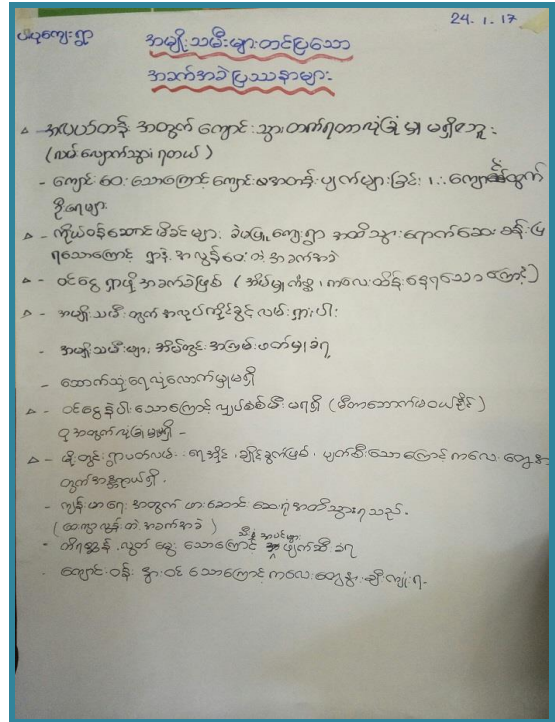 24.1.17
အမျိုးသမီးများတင်ပြသော
အခက်အခဲပြဿနာများ
- အလယ်တန်း အတွက် ကျောင်းသွားတက်ရတာလုံခြုံမှု မရှိဘူး
(လမ်းလျှောက်သွားရတယ်)
- ကျောင်းဝေးသောကြောင့် ကျောင်းမအတန်းပျက်များခြင်း၊ ကျောင်းထွက်
ဦးရေများ
- ကိုယ်ဝန်ဆောင်မိခင်များ ကျေးရွာ အထိသွားရောက်ဆေးခန်းပြ
ရသောကြောင့် ရွာနဲ့ အလွန်ဝေးတဲ့ အခက်အခဲ
- ဝင်ငွေရှာဖို့အခက်ခဲဖြစ် (အိမ်မှုကိစ္စ၊ ကလေးထိန်းနေရသောကြောင့်)
- အမျိုးသမီးတွက်အလုပ်ကိုင်ခွင့်လမ်းရှားပါး
- အမျိုးသမီးများ အိမ်တွင်းအကြမ်းဖတ်မှုခံရ
- သောက်သုံးရေလုံလောက်မှုမရှိ
- ဝင်ငွေနဲပါးသောကြောင့် လျှပ်စစ်မီးမရရှိ (မီတာဘောက်မဝယ်နိုင်)
အတွက်လုံခြုံမှုမရှိ -
- မိုးတွင်းရွာပတ်လမ်း ရေအိုင်၊ ချိုင့်ခွက်ဖြစ်၊ ပျက်ဆီးသောကြောင့် ကလေးတွေ
တွက်အန္တရာယ်ရှိ.
- ကျန်းမာရေးအတွက် ဆေးရုံအထိသွားရသည်.
(ဝေးကွာလွန်းတဲ့ အခက်အခဲ)
- တိရစ္ဆာန်လွှတ်မွေးသောကြောင့် သီးနှံအပင်များ ဖျက်ဆီးခံရ
- ကျောင်းဝန်းနွားဝင်သောကြောင့်ကလေးတွေ